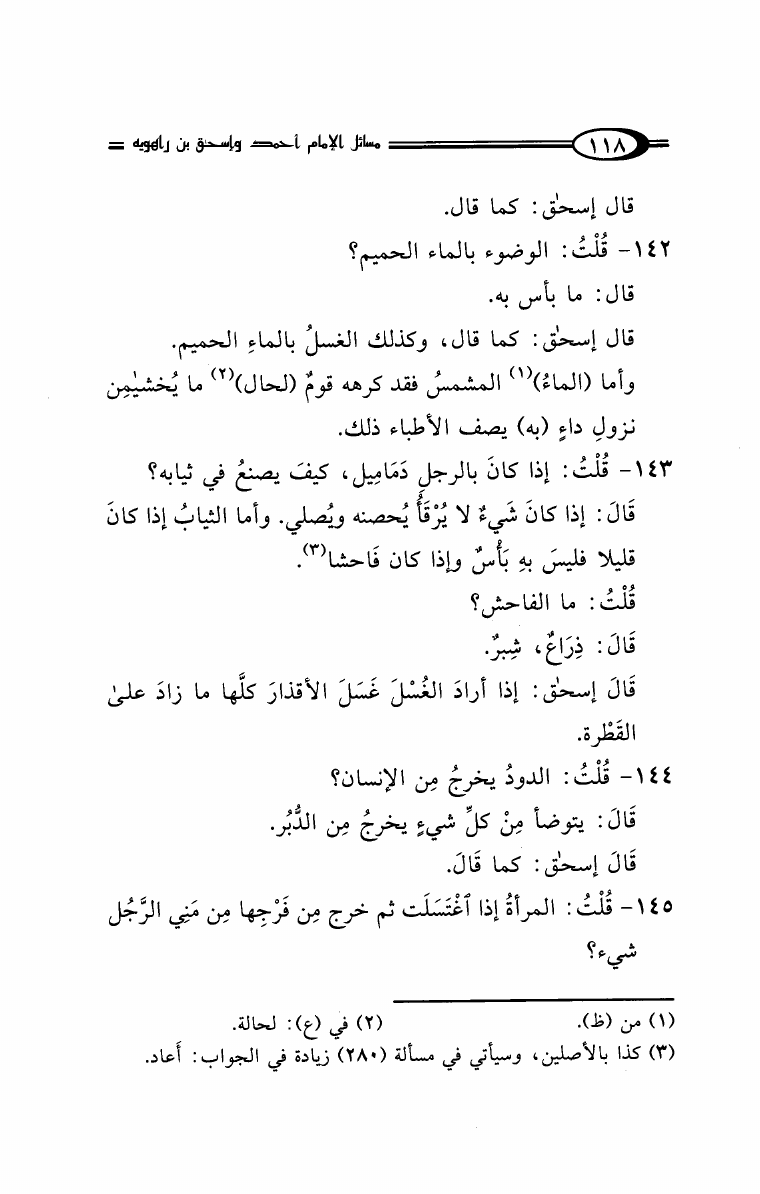 ١١٨ مسائل الإمام أحمد وإسحاق بن راهويه
قال إسحٰق: كما قال.
١٤٢- قُلْتُ: الوضوء بالماء الحميم؟
قال: ما بأس به.
قال إسحٰق: كما قال، وكذلك الغسلُ بالماءِ الحميم.
وأما (الماءُ)(١) المشمسُ فقد كرهه قومٌ (لحال)(٢) ما يُخشىٰمِن
نزولِ داءٍ (به) يصف الأطباء ذلك.
١٤٣- قُلْتُ: إذا كانَ بالرجلِ دَمَامِيل، كيفَ يصنعُ في ثيابه؟
قَالَ: إذا كانَ شَيءٌ لا يُرْقَأُ يُحصنه ويُصلي. وأما الثيابُ إذا كانَ
قليلا فليسَ بهِ بَأْسٌ وإذا كان فَاحشا(٣).
قُلْتُ: ما الفاحش؟
قَالَ: ذِرَاعٌ، شِبرٌ.
قَالَ إسحٰق: إذا أرادَ الغُسْلَ غَسَلَ الأقذارَ كلَّها ما زادَ علىٰ
القَطْرة.
١٤٤- قُلْتُ: الدودُ يخرجُ مِن الإنسان؟
قَالَ: يتوضأ مِنْ كلِّ شيءٍ يخرجُ مِن الدُّبُر.
قَالَ إسحٰق: كما قَالَ.
١٤٥- قُلْتُ: المرأةُ إذا ٱغْتَسَلَت ثم خرج مِن فَرْجِها مِن مَنِي الرَّجُل
شيء؟
(١) من (ظ). (٢) في (ع): لحالة.
(٣) كذا بالأصلين، وسيأتي في مسألة (٢٨٠) زيادة في الجواب: أَعاد.